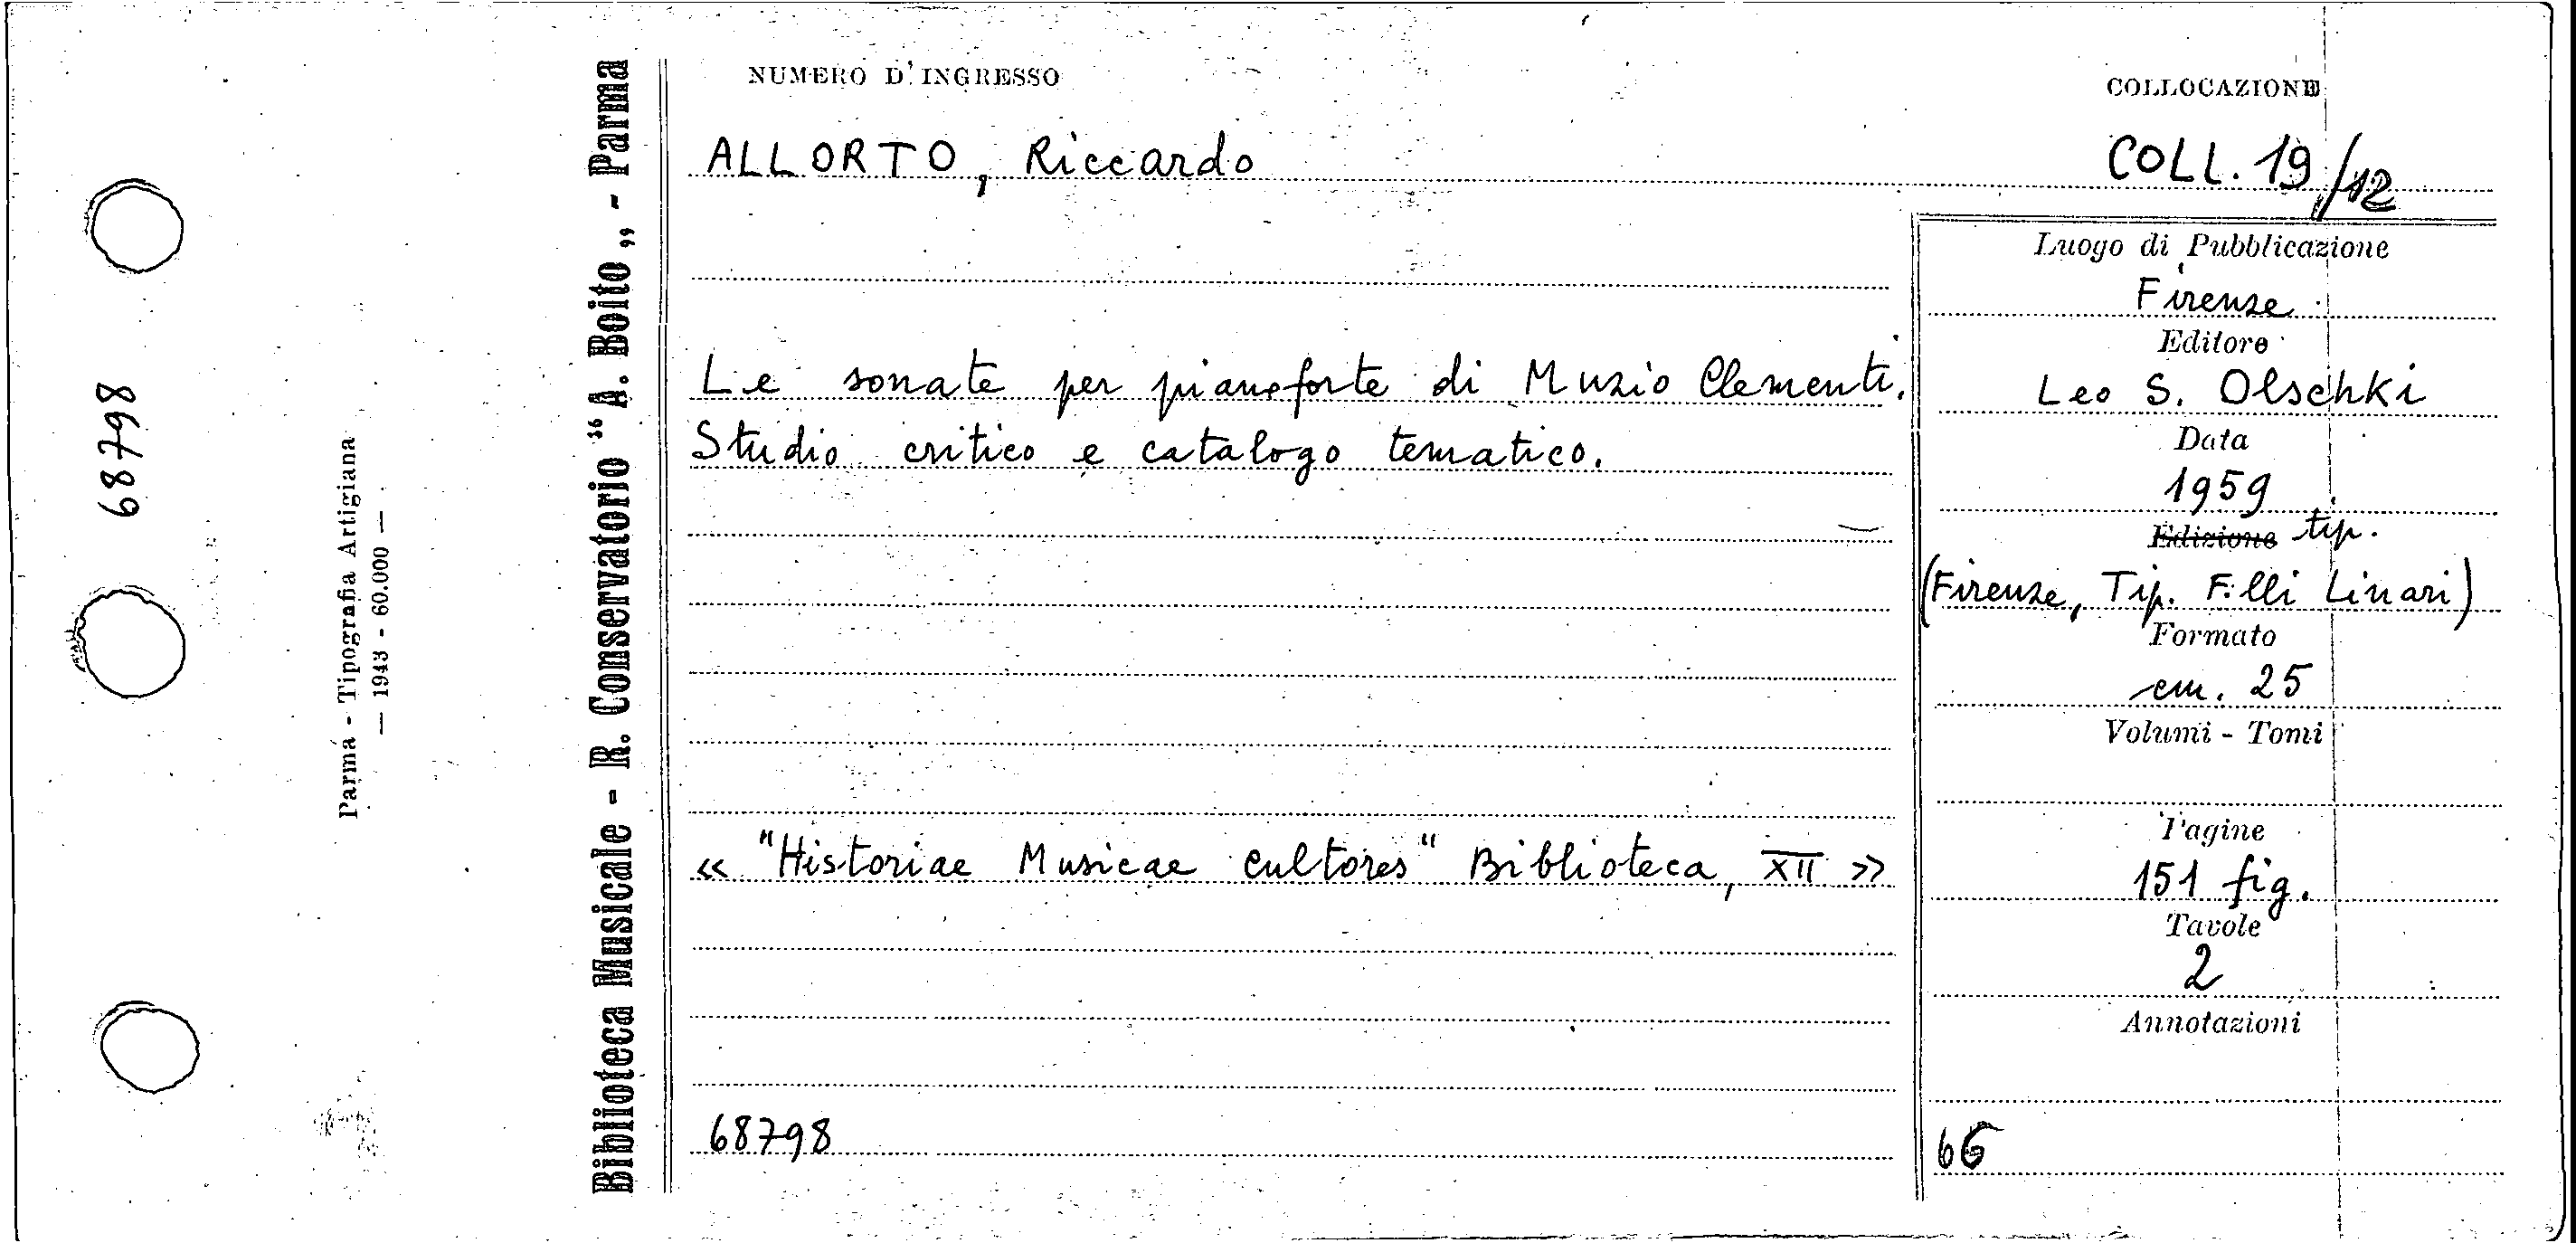 68798
Parma - Tipografia Artigiana
— 1943 - 60.000 —
Biblioteca Musicale - R. Conservatorio “A. Boito„ - Parma
NUMERO D'INGRESSO
COLLOCAZIONE
ALLORTO, Riccardo
COLL. 19/12
Le sonate per pianoforte di Muzio Clementi.
Studio critico e catalogo tematico.
« "Historiae Musicae Cultores" Biblioteca, XII »
68798
Luogo di Pubblicazione
Firenze
Editore
Leo S. Olschki
Data
1959
Edizione tip.
(Firenze, Tip. F.lli Linari)
Formato
cm. 25
Volumi - Tomi
Pagine
151 fig.
Tavole
2
Annotazioni
66